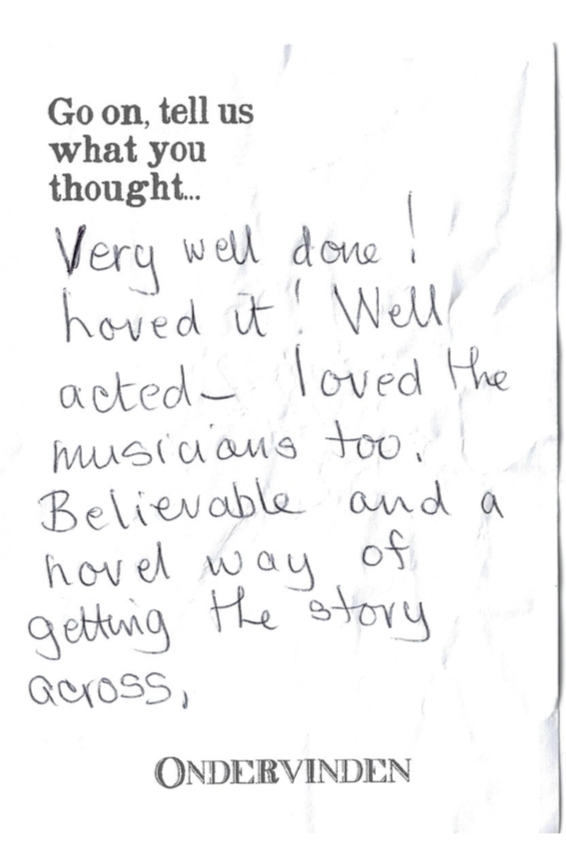 Go on, tell us
what you
thought...
Very well done!
Loved it! Well
acted– loved the
musicians too.
Believable and a
novel way of
getting the story
across,
ONDERVINDEN